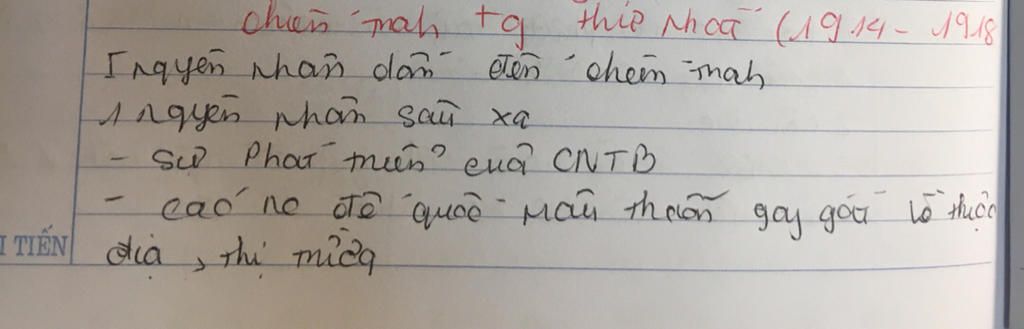 chiến tranh tg thứ nhất (1914 - 1918
I nguyên nhân dẫn đến chiến tranh
1 nguyên nhân sâu xa
- sự phát triển của CNTB
- các nc đế quốc mâu thuẫn gay gắt vì thuộc
I TIẾN địa, thị trường